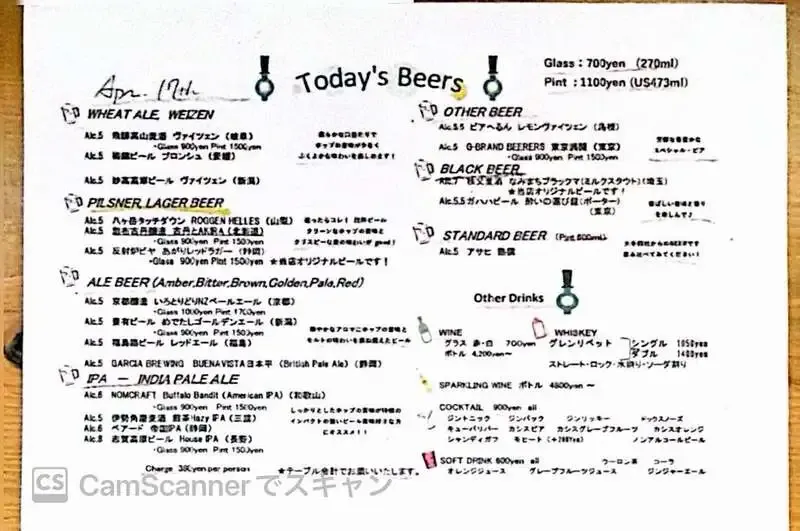 Apr. 17th
Today's Beers
Glass : 700yen (270ml)
Pint : 1100yen (US473ml)
WHEAT ALE, WEIZEN
Alc.5 飛騨高山麦酒 ヴァイツェン (岐阜)
・Glass 900yen Pint 1500yen
Alc.5 ビール ブロンシュ (愛媛)
Alc.5 妙高高原ビール ヴァイツェン (新潟)
PILSNER, LAGER BEER
Alc.5 八ヶ岳タッチダウン ROGGEN HELLES (山梨)
Alc.5 古丹とAKIRA (北海道)
・Glass 900yen Pint 1500yen
Alc.5 反射炉ビヤ あがりレッドラガー (静岡)
・Glass 900yen Pint 1500yen ★当店オリジナルビールです!
ALE BEER (Amber,Bitter,Brown,Golden,Pale,Red)
Alc.5 京都醸造 いろとりどりNZペールエール (京都)
・Glass 1000yen Pint 1700yen
Alc.5 ビール めでたしゴールデンエール (新潟)
・Glass 900yen Pint 1500yen
Alc.5 福島路ビール レッドエール (福島)
Alc.5 GARCIA BREWING BUENAVISTA日本平 (British Pale Ale) (静岡)
IPA — INDIA PALE ALE
Alc.6 NOMCRAFT Buffalo Bandit (American IPA) (和歌山)
・Glass 900yen Pint 1500yen
Alc.5 伊勢角屋麦酒 Hazy IPA (三重)
Alc.6 ベアード 帝国IPA (静岡)
Alc.8 志賀高原ビール House IPA (長野)
・Glass 900yen Pint 1500yen
しっかりとしたホップの苦味が特徴の
インパクトの強いビール苦味好きな方
にオススメ!!
Charge 380yen per person
★テーブル会計でお願いいたします。
OTHER BEER
Alc.5.5 ビアへるん レモンヴァイツェン (島根)
Alc.5 G-BRAND BEERERS 東京 (東京)
・Glass 900yen Pint 1500yen
スペシャル・ビア
BLACK BEER
Alc.7 秩父麦酒 なみまちブラックマ(ミルクスタウト)(埼玉)
★当店オリジナルビールです!
Alc.5.5 ガハハビール 酔いの喜び(ポーター)
(東京)
STANDARD BEER (Pint 600ml)
Alc.5 アサヒ 熟撰
Other Drinks
WINE
グラス 赤・白 700yen
ボトル 4,200yen～
WHISKEY
グレンリベット シングル 1050yen
ダブル 1400yen
ストレート・ロック・水割り・ソーダ割り
SPARKLING WINE ボトル 4800yen ～
COCKTAIL 900yen all
ジントニック ジンバック ジンリッキー ドッグスノーズ
キューバリバー カシスビア カシスグレープフルーツ カシスオレンジ
シャンディガフ モヒート (+200Yen) ノンアルコールビール
SOFT DRINK 600yen all ウーロン茶 コーラ
オレンジジュース グレープフルーツジュース ジンジャーエール
CS CamScanner でスキャン